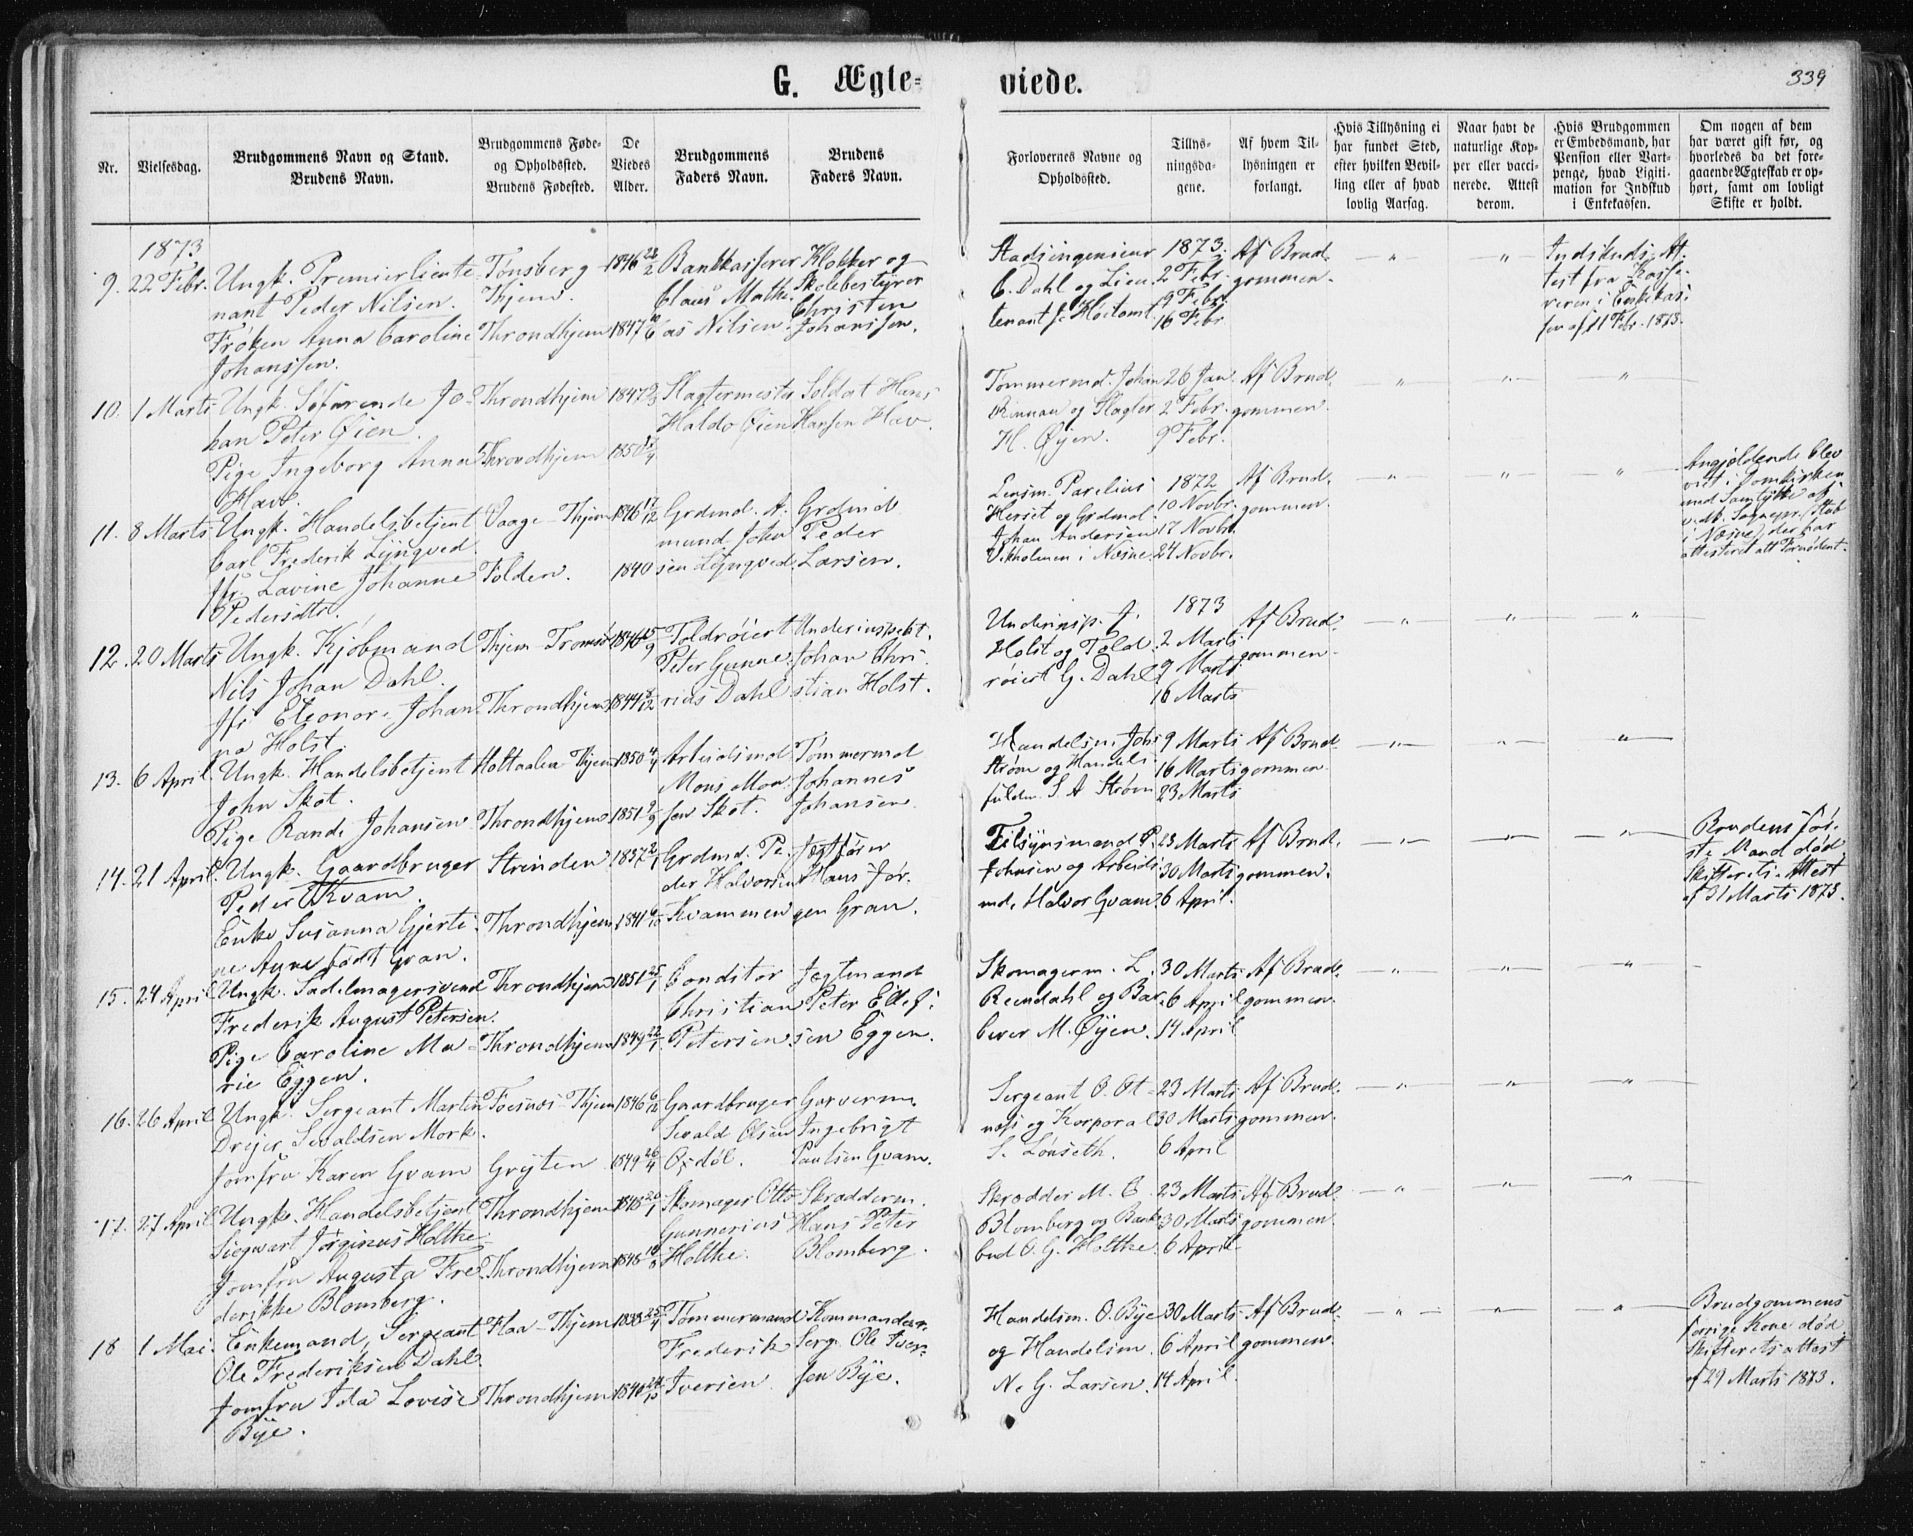 G. Ægte-
viede.
339
Nr.
Vielsesdag.
Brudgommens Navn og Stand.
Brudens Navn.
Brudgommens Føde-
og Opholdssted.
Brudens Fødested.
De
Viedes
Alder.
Brudgommens
Faders Navn.
Brudens
Faders Navn.
Forlovernes Navne og
Opholdssted.
Tillys-
ningsda-
gene.
Af hvem Til-
lysningen er
forlangt.
Hvis Tillysning ei
har fundet Sted,
efter hvilken Bevil-
ling eller af hvad
lovlig Aarsag.
Naar havt de
naturlige Kop-
per eller vacci-
nerede. Attest
derom.
Hvis Brudgommen
er Embedsmand, har
Pension eller Vart-
penge, hvad Ligiti-
mation for Indskud
i Enkekassen.
Om nogen af dem
har været gift før, og
hvorledes da det fore-
gaaende Ægteskab er op-
hørt, samt om lovligt
Skifte er holdt.
1873
9. 22 Febr.
Ungk. Premierlieute-
nant Peder Nilsen.
Frøken Anna Caroline
Johanssen.
Tønsberg
Thjem.
Throndhjem
1846 22/2
1847
Bankkasserer
Claus Mathi-
as Nilsen.
Klokker og
Skolebestyrer
Christen
Johanssen.
Stadsingenieur
C. Dahl og Lieu-
tenant
1873.
2 Febr.
9 Febr.
16 Febr.
Af Brud-
gommen.
Indskuds At-
test fra Kasse-
reren i Enkekas-
sen af 11 Febr. 1873.
10. 1 Marts
Ungk. Søfarende Jo-
han Peter Øien.
Pige Ingeborg Anna
Hav.
Throndhjem
Throndhjem
1847
1850
Slagtermester
Haldo Øien
Soldat Hans
Hansen Hav.
Tømmermd. Johan
Rinnan og Slagter
H. Øyen.
26 Jan.
2 Febr.
9 Febr.
Af Brud-
gommen.
11. 8 Marts
Ungk. Handelsbetjent
Carl Frederik Lyngved
Jfr. Lavine Johanne
Pedersdtr.
Vaage - Thjem
Folden.
1846 17/12
1840
Grdmd. A-
mund John
sen Lyngved
Grdmd
Peder
Larsen.
Lensm. Parelius
Herset og Grdmd.
Johan Andersen
i Næsne
1872
10 Novbr.
17 Novbr.
24 Novbr.
Af Brud-
gommen.
Angjeldende blev
viet i Domkirken
med Samtykke af
vedk. Sognepr.
i Næsne, der har
attesteret alt Fornødent.
12. 20 Marts
Ungk. Kjøbmand
Nils Johan Dahl.
Jfr. Eleonore Johan-
na Holst.
Thjem - Tromsø
Throndhjem
1846
1844
Toldrøiert
Peter Gunne-
rius Dahl
Underinspekt.
Johan Chri-
stian Holst.
Underinsp. J.
Holst og Told-
røiert G. Dahl.
1873
2 Marts
9 Marts
16 Marts
Af Brud-
gommen.
13. 6 April
Ungk. Handelsbetjent
John Skot.
Pige Rande Johansen
Holtaalen - Thjem
Throndhjem
1850
1851
Arbeidsmd
Mons Mon-
sen Skot.
Tømmermd
Johannes
Johansen.
Handelsm. Johs
Strøm og Handels-
fuldm. S. A Strøm
9 Marts
16 Marts
23 Marts
Af Brud-
gommen.
14. 21 April.
Ungk. Gaardbruger
Peder Kvam.
Enke Susanna Gjerti-
ne Aune født Gran.
Strinden
Throndhjem
1837
1841
Grdmd. Pe-
der Halvorsen
Kvammen
Jægtfører
Hans Jør-
gen Gran.
Tilsynsmand P.
Johnsen og Arbeids-
md. Halvor Qvam.
23 Marts
30 Marts
6 April.
Af Brud-
gommen.
Brudens før-
ste Mand død
Skifterets Attest
af 31 Marts 1873.
15. 24 April
Ungk. Sadelmagersvend
Frederik August Petersen.
Pige Caroline Ma-
rie Eggen.
Throndhjem
Throndhjem
1851 25/1
1849 22/1
Conditor
Christian
Petersen
Jægtmand
Peter Ellef-
sen Eggen.
Skomagerm. L.
Reindahl og Bar-
berer M. Øyen.
30 Marts
6 April
14 April
Af Brud-
gommen.
16. 26 April
Ungk. Sergeant Martin
Drejer Sevaldsen Mork.
Jomfru Karen Qvam
Foesnæs - Thjem
Grytten
1846
1849 26/4
Gaardbruger
Sevald Olsen
Garverm.
Ingebrigt
Paulsen Qvam.
Sergeant O. Ot-
næs og Korporal
S. Lønseth.
23 Marts
30 Marts
6 April
Af Brud-
gommen.
17. 27 April
Ungk. Handelsbetjent
Siegwart Jørginus Holtke
Jomfru Augusta Fre-
derikke Blomberg.
Throndhjem
Throndhjem
1848
1848
Skomager Otto
Gunnerius
Holtke.
Skrædderm.
Hans Peter
Blomberg.
Skrædder M. C.
Blomberg og Bank-
bud O. G. Holtke.
23 Marts
30 Marts
6 April
Af Brud-
gommen.
18 1 Mai.
Enkemand, Sergeant
Ole Frederiksen Dahl.
Jomfru Ida Lovise
Bye.
Flaa - Thjem
Throndhjem
1838
1840
Tømmermand
Frederik
Iversen
Kommander-
Serg. Ole Iver-
sen Bye.
Handelsm. O. Bye
og Handelsm.
N. G. Larsen.
30 Marts
6 April
14 April.
Af Brud-
gommen.
Brudgommens
forrige Kone død
Skifterets attest
af 29 Marts 1873.